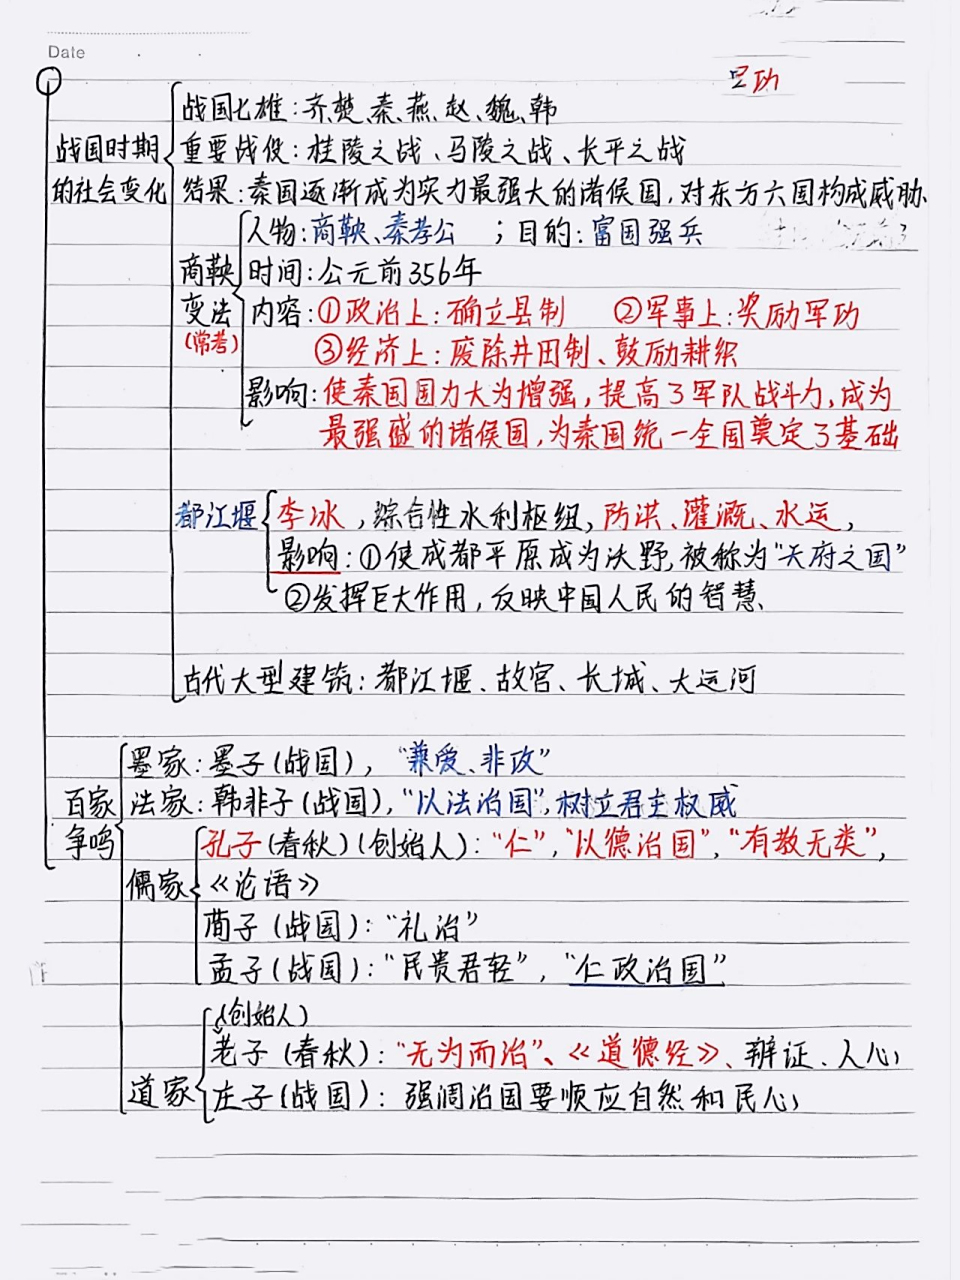 Date
战国时期
的社会变化
战国七雄:齐、楚、秦、燕、赵、魏、韩
重要战役:桂陵之战、马陵之战、长平之战
结果:秦国逐渐成为实力最强大的诸侯国,对东方六国构成威胁、
商鞅
变法
(常考)
人物:商鞅、秦孝公 ;目的:富国强兵
时间:公元前356年
内容:①政治上:确立县制 ②军事上:奖励军功
③经济上:废除井田制、鼓励耕织
影响:使秦国国力大为增强,提高了军队战斗力,成为
最强盛的诸侯国,为秦国统一全国奠定了基础
都江堰
李冰,综合性水利枢纽,防洪、灌溉、水运,
影响:①使成都平原成为沃野,被称为“天府之国”
②发挥巨大作用,反映中国人民的智慧、
古代大型建筑:都江堰、故宫、长城、大运河
百家
争鸣
墨家:墨子(战国),“兼爱、非攻”
法家:韩非子(战国),“以法治国”,树立君主权威
儒家
孔子(春秋)(创始人):“仁”,“以德治国”,“有教无类”,
《论语》
荀子(战国):“礼治”
孟子(战国):“民贵君轻”,“仁政治国”
道家
(创始人)
老子(春秋):“无为而治”、《道德经》、辩证、人心,
庄子(战国):强调治国要顺应自然和民心,